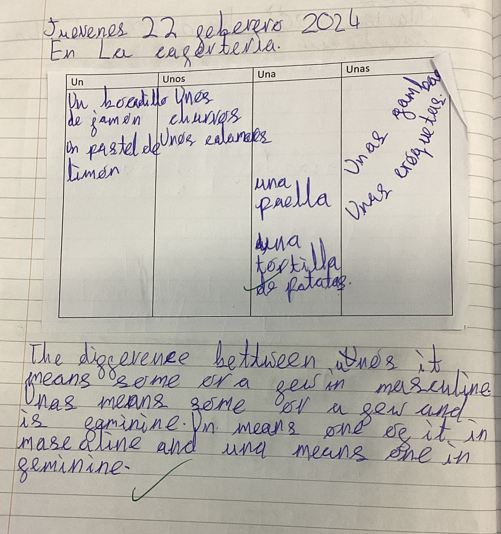 Juevenes 22 geberero 2024
En La cagerteria.
Un Unos Una Unas
Un bocadillo
de jamón
un pastel de
limón
Unos
churros
Unos calamares
una
paella
una
tortilla
de patatas.
Unas gambas
Unas croquetas.
The diggerence bettween unos it
means some or a gew in masculine
Unas means some or a gew and
is geminine. Un means one og it in
masculine and una means one in
geminine.